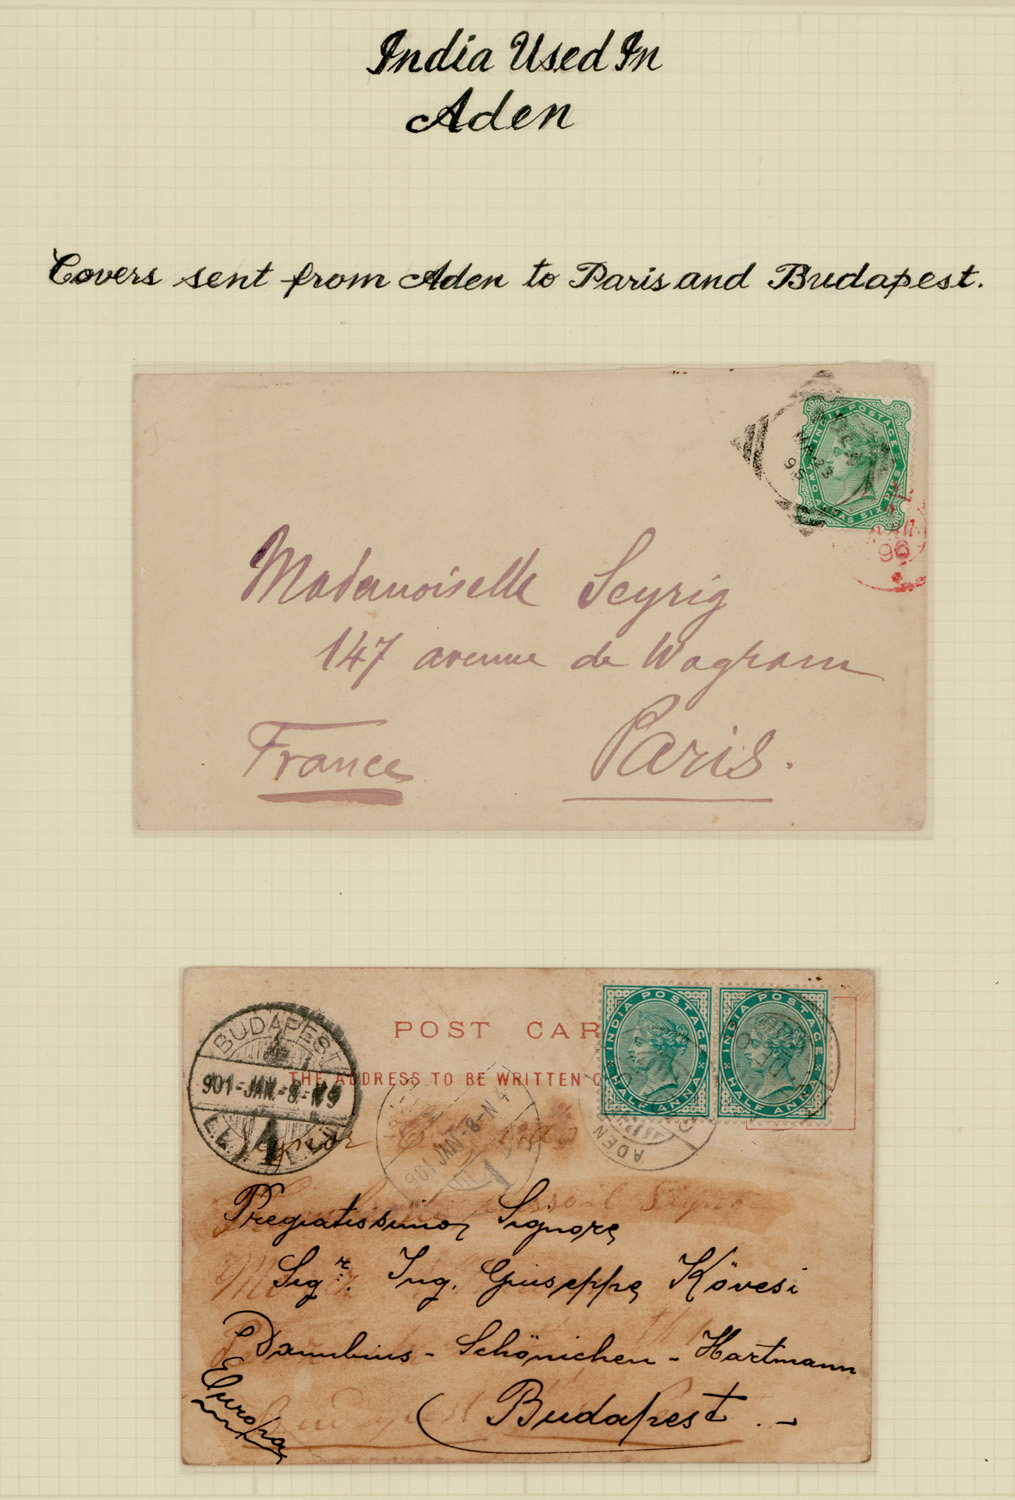 India Used In
Aden
Covers sent from Aden to Paris and Budapest.
INDIA POSTAGE
TWO ANNAS SIX PIES
MR 23
96
Mademoiselle Seyrig
147 avenue de Wagram
France Paris.
BUDAPEST
901-JAN-8-N9
1
POST CAR
THE ADDRESS TO BE WRITTEN O
INDIA POSTAGE
HALF ANNA
INDIA POSTAGE
HALF ANNA
901 JAN-8-N4
1
ADEN
Pregiatissimo Signore
Sigr. Ing. Giuseppe Kövesi
Danubius - Schönichen - Hartmann
Budapest.-
Europa